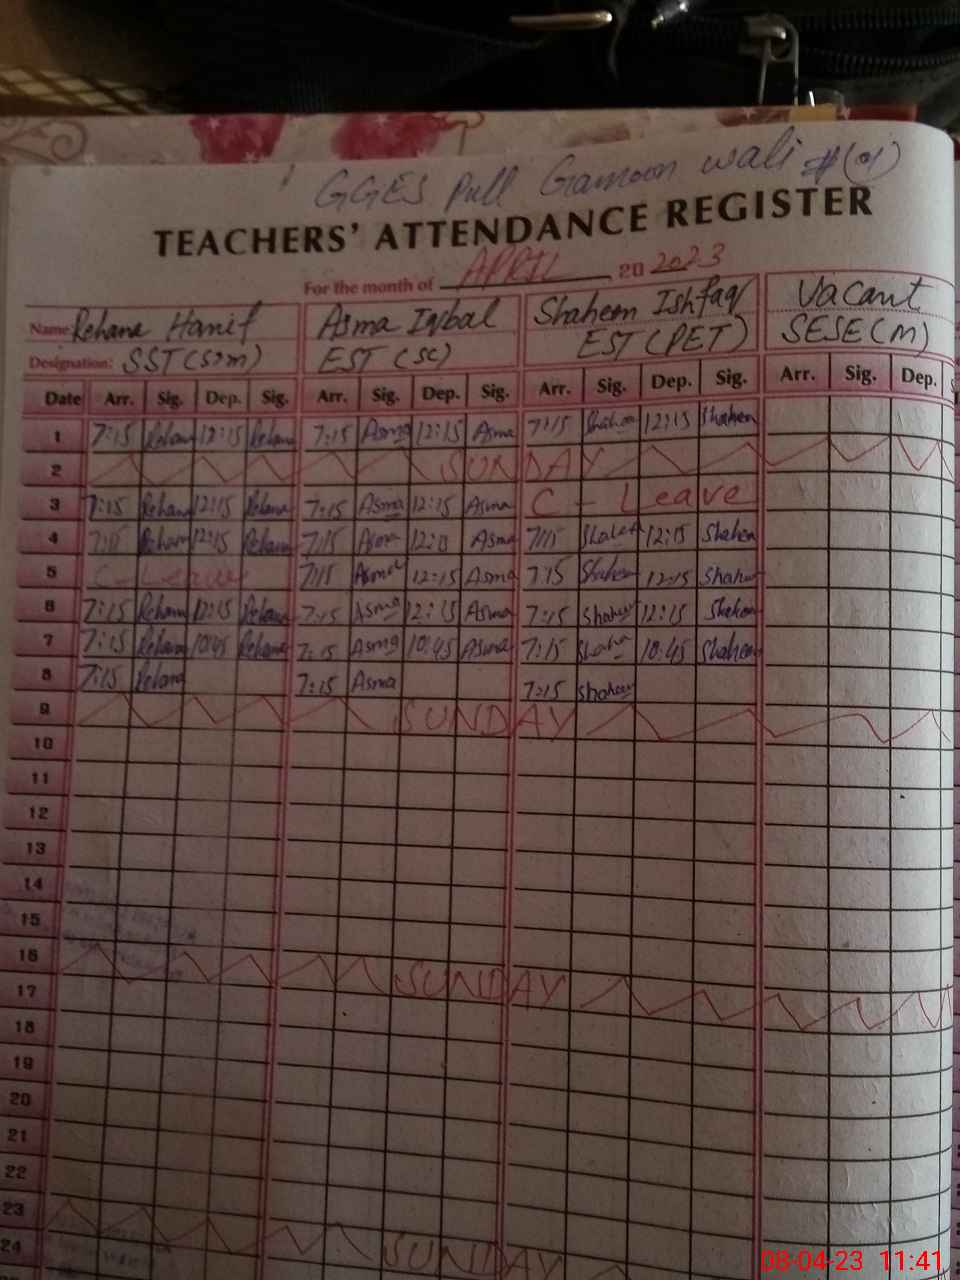 GGES Pull Gamoon wali #(01)
TEACHERS' ATTENDANCE REGISTER
For the month of APRIL 20 2023
Name: Rehana Hanif Asma Iqbal Shaheen Ishfaq Vacant
Designation: SST(Sci) EST (SC) EST (PET) SESE(M)
Date Arr. Sig. Dep. Sig. Arr. Sig. Dep. Sig. Arr. Sig. Dep. Sig. Arr. Sig. Dep.
1 7:15 Rehana 12:15 Rehana 7:15 Asma 12:15 Asma 7:15 Shaheen 12:15 Shaheen
2 SUNDAY
3 7:15 Rehana 12:15 Rehana 7:15 Asma 12:15 Asma C - Leave
4 7:15 Rehana 12:15 Rehana 7:15 Asma 12:15 Asma 7:15 Shaheen 12:15 Shaheen
5 C - Leave 7:15 Asma 12:15 Asma 7:15 Shaheen 12:15 Shaheen
6 7:15 Rehana 12:15 Rehana 7:15 Asma 12:15 Asma 7:15 Shaheen 12:15 Shaheen
7 7:15 Rehana 10:45 Rehana 7:15 Asma 10:45 Asma 7:15 Shaheen 10:45 Shaheen
8 7:15 Rehana 7:15 Asma 7:15 Shaheen
9 SUNDAY
10
11
12
13
14
15
16 SUNDAY
17
18
19
20
21
22
23 SUNDAY
24
08-04-23 11:41